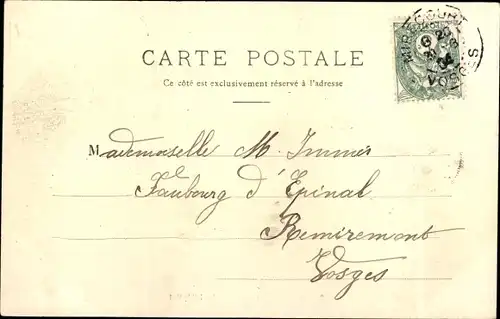 MIRECOURT
VOSGES
CARTE POSTALE
Ce côté est exclusivement réservé à l'adresse
Mademoiselle M. Immer
Faubourg d'Epinal
Remiremont
Vosges